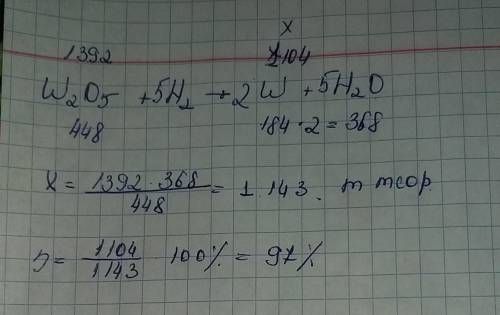 x
1392 1104
W₂O₅ + 5H₂ → 2W + 5H₂O
448 184·2=368
X = 1392·368 / 448 = 1.143. m теор.
η = 1104 / 1143 · 100% = 97%